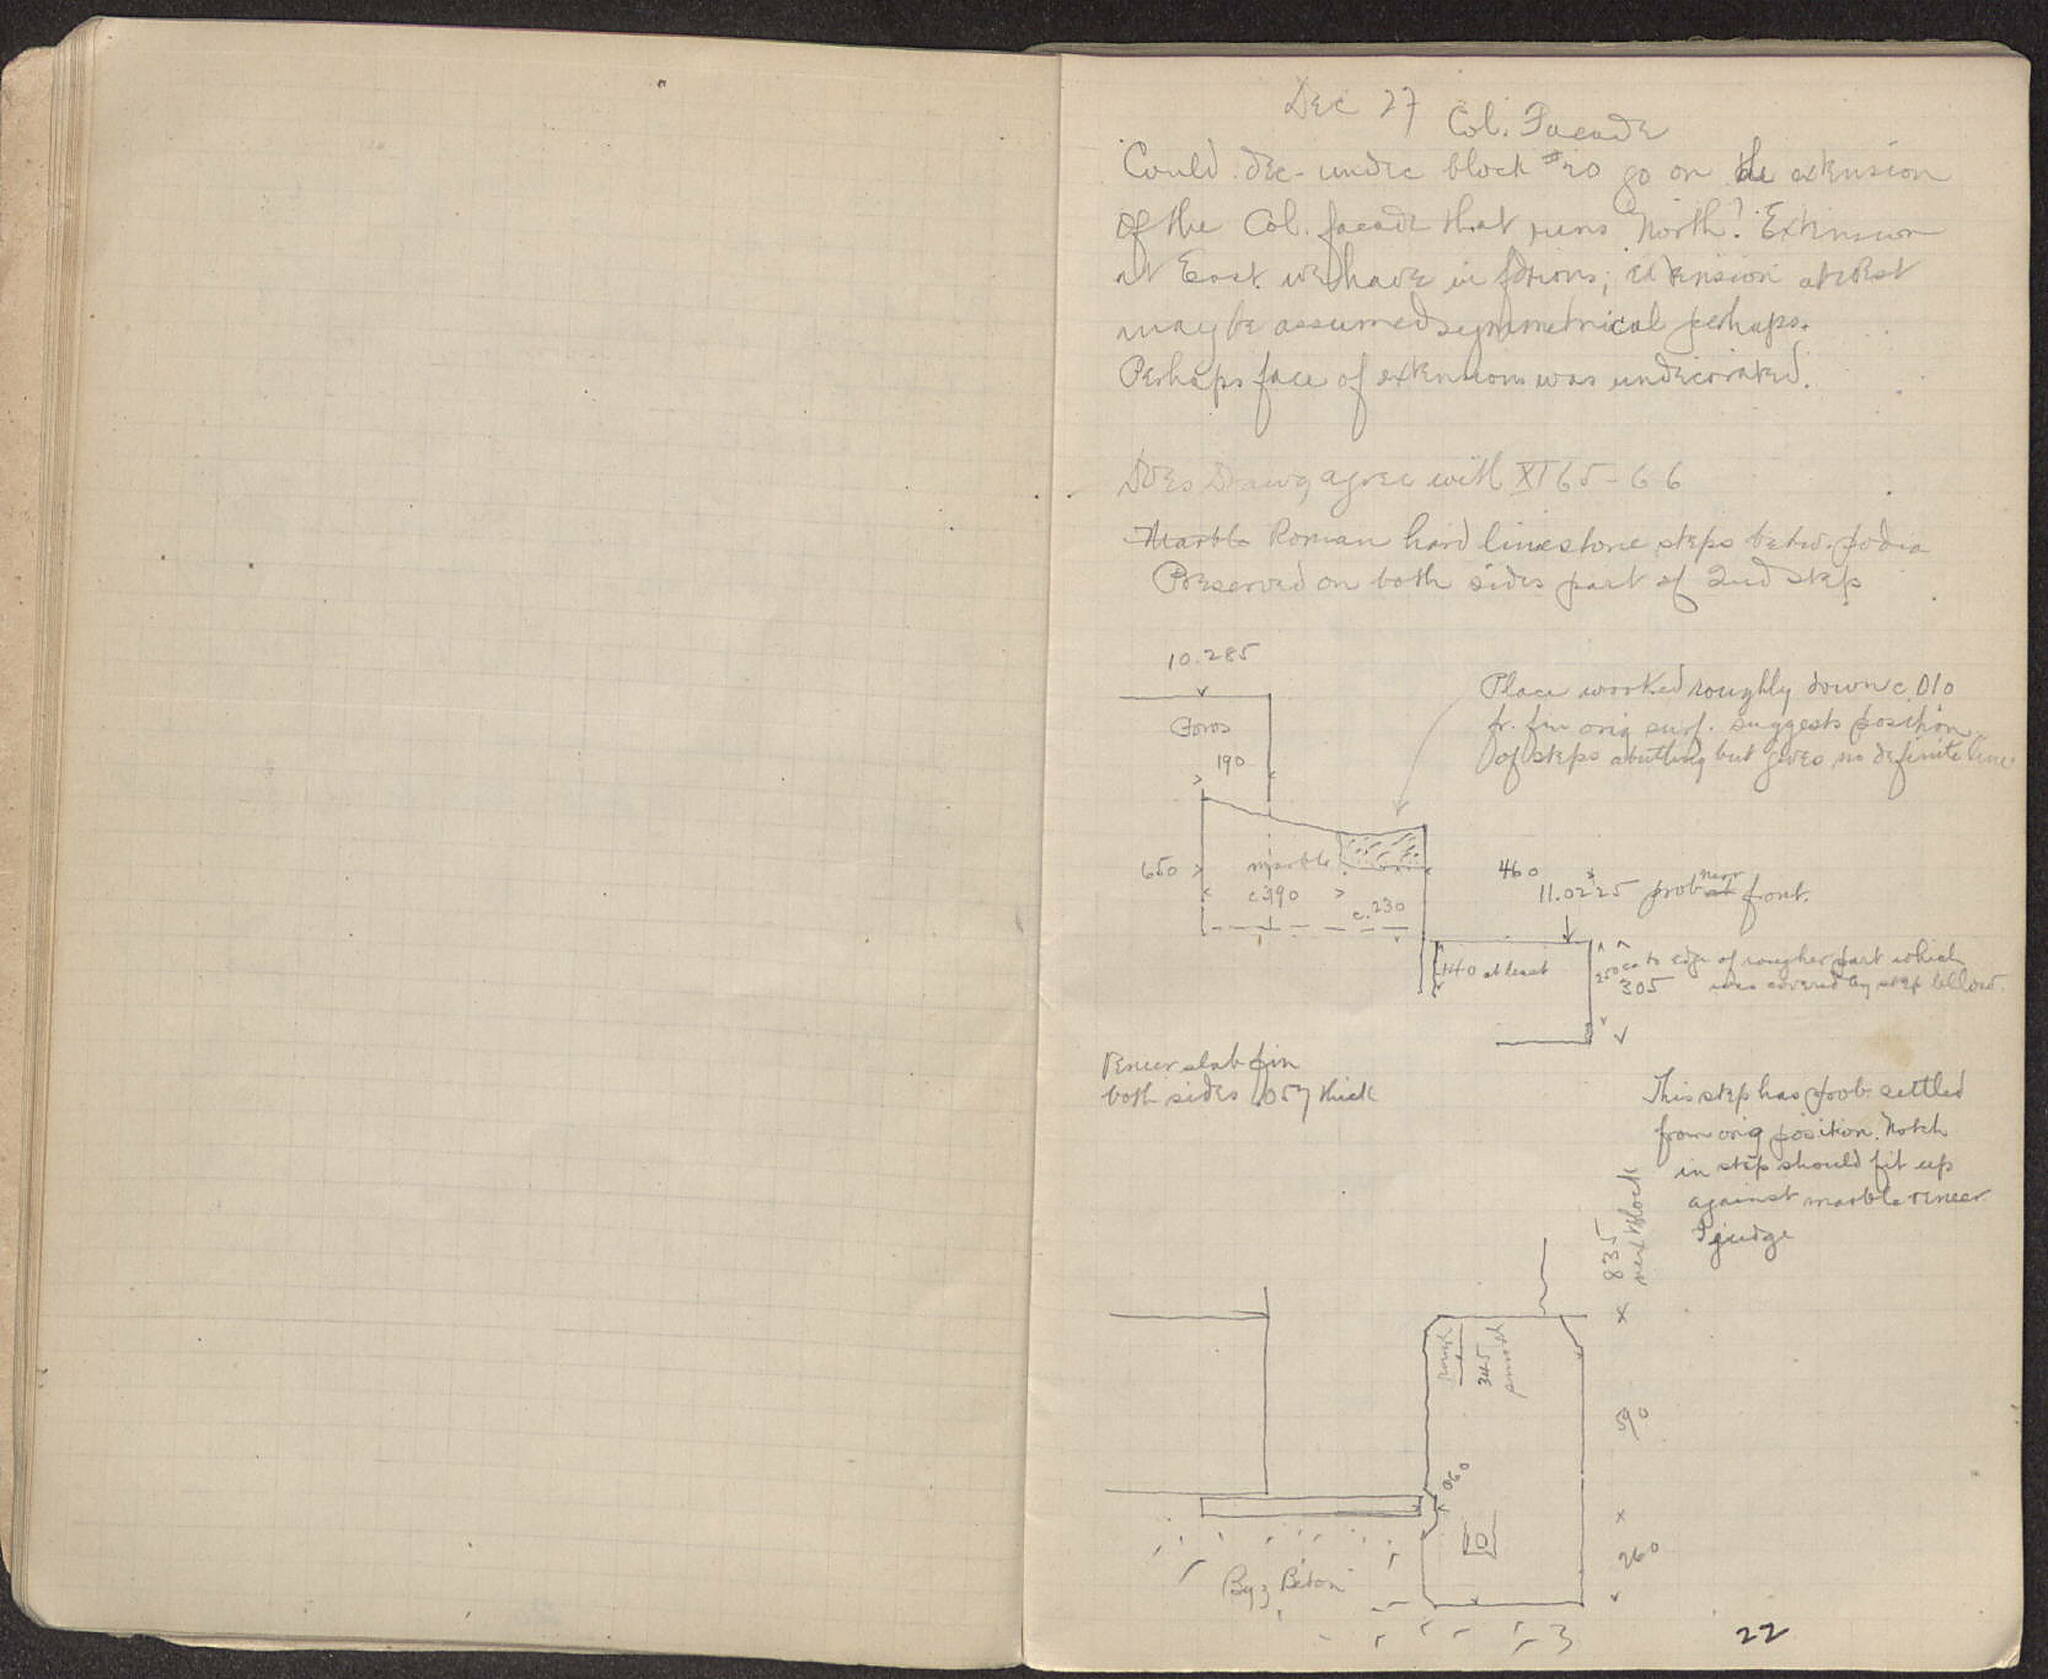 Dec 27
Col. Facade
Could dec. under block #20 go on the extension
of the Col. facade that runs North? Extension
at East we have in ; extension at West
may be assumed symmetrical perhaps.
Perhaps face of extensions was undecorated.
Does Drawg agree with XI 65-66
Marble Roman hard limestone steps betw. podia
Preserved on both sides part of 2nd step
10.285
Poros
190
Place worked roughly down c 010
fr. orig surf. suggests position
of steps abutting but gives no definite line
650
marble
c390
c.230
460
11.0225 prob at near front.
140 at least
250 ca to edge of rougher part which
was covered by step below.
305
Veneer slab fin
both sides .057 thick
This step has prob. settled
from orig position. Notch
in step should fit up
against marble veneer
I judge
835
next block
rough
345
smooth
590
060
10
260
Byz Beton
22